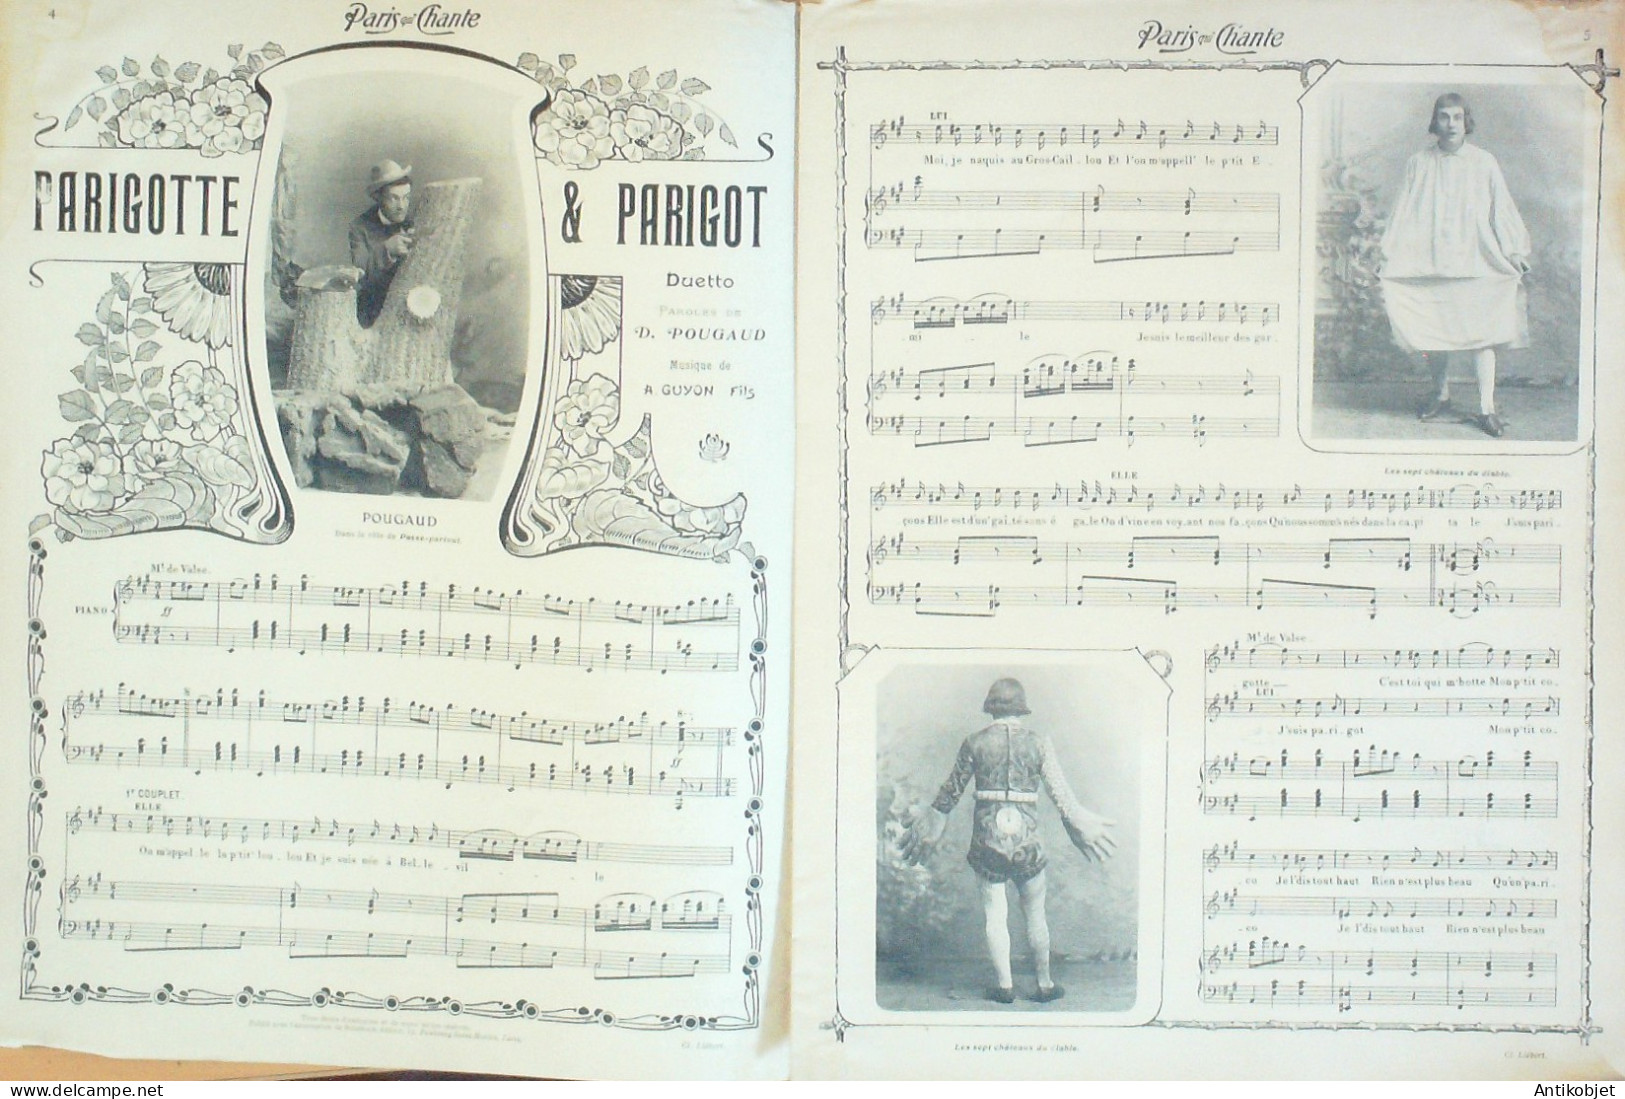 4
Paris qui Chante
PARIGOTTE & PARIGOT
Duetto
PAROLES DE
D. POUGAUD
Musique de
A. GUYON Fils
POUGAUD
Dans le rôle de Passe-partout.
Mt de Valse.
PIANO
ff
ff
1r COUPLET.
ELLE
On m'appel le la p'tit' lou - lou Et je suis née à Bel - le - vil - - - le
Cl. Liébert.
Paris qui Chante
5
LUI
Moi, je naquis au Gros-Cail - lou Et l'on m'appell' le p'tit E -
- mi - le Je suis le meilleur des gar -
Les sept châteaux du diable.
ELLE
çons Elle est d'un' gai, té sans é ga, le On d'vine en voy, ant nos fa, çons Qu'nous somm's nés dans la ca, pi ta le J'suis pari -
Mt de Valse.
gotte — C'est toi qui m'botte Mon p'tit co -
LUI
J'suis pa - ri - got Mon p'tit co -
- co Je l'dis tout haut Rien n'est plus beau Qu'un' pa, ri -
- co Je l'dis tout haut Rien n'est plus beau
Les sept châteaux du diable.
Cl. Liébert.
Antikobjet